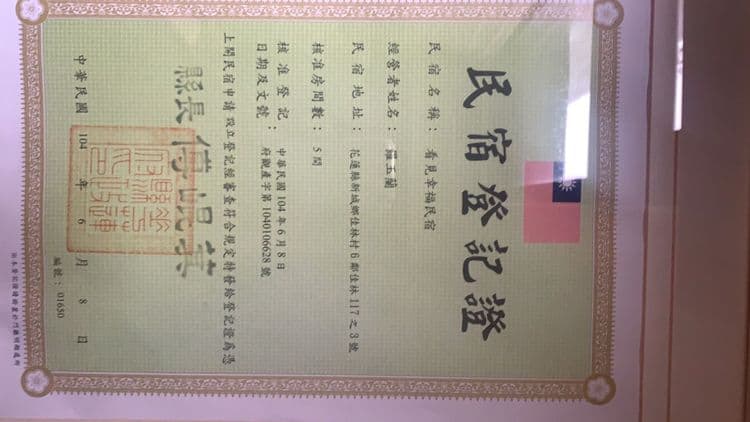 民宿登記證
民宿名稱：看見幸福民宿
經營者姓名：羅玉蘭
民宿地址：花蓮縣新城鄉佳林村6鄰佳林117之3號
核准房間數：5間
核准登記
日期及文號：
中華民國104年6月8日
府觀產字第1040106628號
上開民宿申請設立登記經審查符合規定特發給登記證為憑
縣長 傅崐萁
中華民國 104 年 6 月 8 日
編號：01650